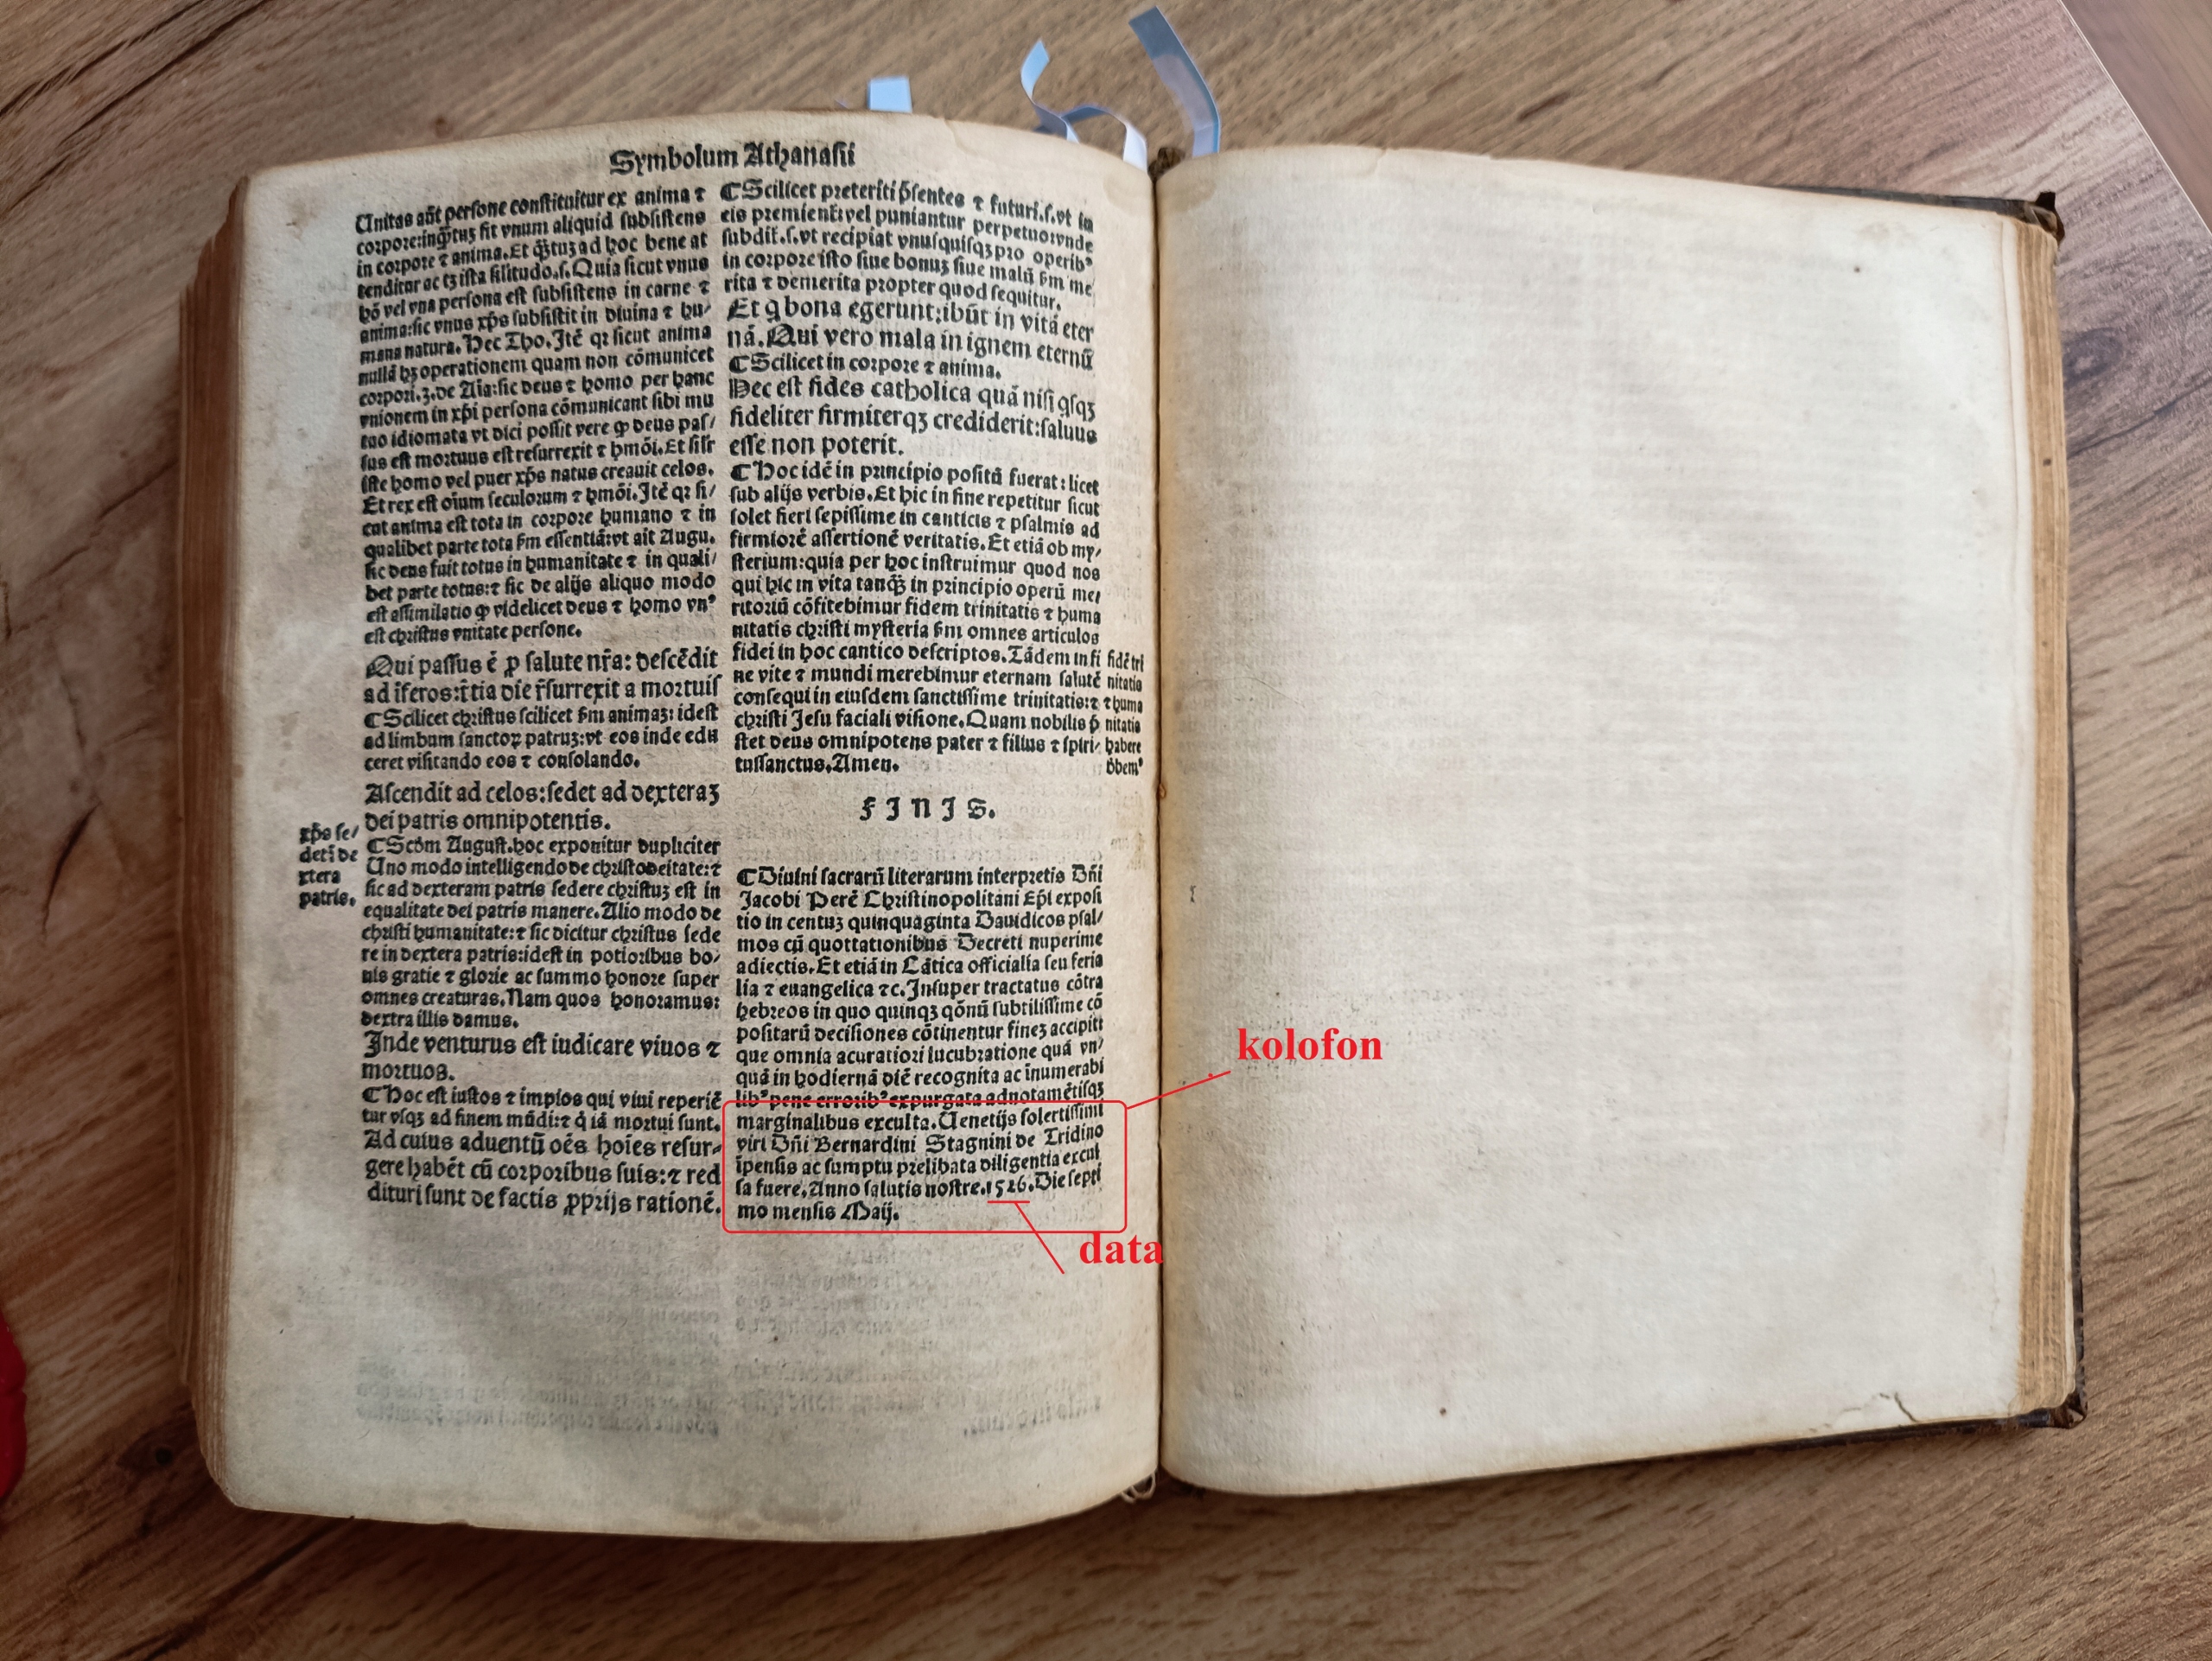 Symbolum Athanasii
Unitas aūt persone constituitur ex anima ⁊
corpore:inq̄tuꝫ fit vnum aliquid subsistens
in corpore ⁊ anima. Et q̄tuꝫ ad hoc bene at
tenditur ac tꝫ ista silitudo.s. Quia sicut vnus
hō vel vna persona est subsistens in carne ⁊
anima:sic vnus xp̄s subsistit in diuina ⁊ hu/
mana natura. Hec Tho. Itē qꝛ sicut anima
nullā hꝫ operationem quam non cōmunicet
corpori.3.de Aīa:sic deus ⁊ homo per hanc
vnionem in xp̄i persona cōmunicant sibi mu
tuo idiomata vt dici possit vere ꝙ deus pas/
sus est mortuus est resurrexit ⁊ hmōi. Et silr
iste homo vel puer xp̄s natus creauit celos.
Et rex est oīum seculorum ⁊ hmōi. Itē qꝛ si/
cut anima est tota in corpore humano ⁊ in
qualibet parte tota fm essentiā:vt ait Augu.
sic deus fuit totus in humanitate ⁊ in quali/
bet parte totus:⁊ sic de alijs aliquo modo
est assimilatio ꝙ videlicet deus ⁊ homo vnꝰ
est christus vnitate persone.
Qui passus ē ꝓ salute nr̄a: descēdit
ad īferos:t̄tia die r̄surrexit a mortuis
¶Scilicet christus scilicet fm animaꝫ: idest
ad limbum sanctoꝝ patruꝫ:vt eos inde edu
ceret visitando eos ⁊ consolando.
Ascendit ad celos:sedet ad dexteraꝫ
dei patris omnipotentis.
xp̄s se/
det ī de
xtera
patris.
¶Scd̄m August. hoc exponitur dupliciter
Uno modo intelligendo de christo deitate:⁊
sic ad dexteram patris sedere christuꝫ est in
equalitate dei patris manere. Alio modo de
christi humanitate:⁊ sic dicitur christus sede
re in dextera patris:idest in potioribus bo/
nis gratie ⁊ glorie ac summo honore super
omnes creaturas. Nam quos honoramus:
dextra illis damus.
Inde venturus est iudicare viuos ⁊
mortuos.
¶Hoc est iustos ⁊ impios qui viui reperiē
tur vsqꝫ ad finem mūdi:⁊ q̄ iā mortui sunt.
Ad cuius aduentū oēs hoīes resur-
gere habēt cū corporibus suis:⁊ red
dituri sunt de factis ꝓprijs rationē.
¶Scilicet preteriti p̄sentes ⁊ futuri.s.vt in
eis premient̄:vel puniantur perpetuo:vnde
subdit̄.s.vt recipiat vnusquisqꝫ pro operibꝰ
in corpore isto siue bonuꝫ siue malū fm me
rita ⁊ demerita propter quod sequitur.
Et q bona egerunt:ibūt in vitā eter
nā. Qui vero mala in ignem eternū
¶Scilicet in corpore ⁊ anima.
Hec est fides catholica quā nisi qsqꝫ
fideliter firmiterqꝫ crediderit:saluus
esse non poterit.
¶Hoc idē in principio positū fuerat: licet
sub alijs verbis. Et hic in fine repetitur sicut
solet fieri sepissime in canticis ⁊ psalmis ad
firmiorē assertionē veritatis. Et etiā ob my/
sterium:quia per hoc instruimur quod nos
qui hic in vita tanq̄ in principio operū me/
ritoriū cōfitebimur fidem trinitatis ⁊ huma
nitatis christi mysteria fm omnes articulos
fidei in hoc cantico descriptos. Tādem in fi
ne vite ⁊ mundi merebimur eternam salutē
consequi in eiusdem sanctissime trinitatis:⁊
christi Jesu faciali visione. Quam nobilis p̄
stet deus omnipotens pater ⁊ filius ⁊ spiri/
tussanctus. Amen.
fidē tri
nitatis
⁊ huma
nitatis
habere
d̄bemꝰ
FINIS.
¶Diuini sacrarū literarum interpretis Dn̄i
Jacobi Perē Christinopolitani Ep̄i exposi
tio in centuꝫ quinquaginta Dauidicos psal/
mos cū quottationibus Decreti nuperime
adiectis. Et etiā in Cātica officialia seu feria
lia ⁊ euangelica ⁊c. Insuper tractatus cōtra
hebreos in quo quinqꝫ qōnū subtilissime cō
positarū decisiones cōtinentur fineꝫ accipiūt
que omnia acuratiori lucubratione quā vn/
quā in hodiernā diē recognita ac īnumerabi
libꝰ pene erroribꝰ expurgata adnotamētisqꝫ
marginalibus exculta. Uenetijs solertissimi
viri Dn̄i Bernardini Stagnini de Tridino
īpensis ac sumptu prelibata diligentia excul
sa fuere. Anno salutis nostre.1526. Die septi
mo mensis Maij.
kolofon
data